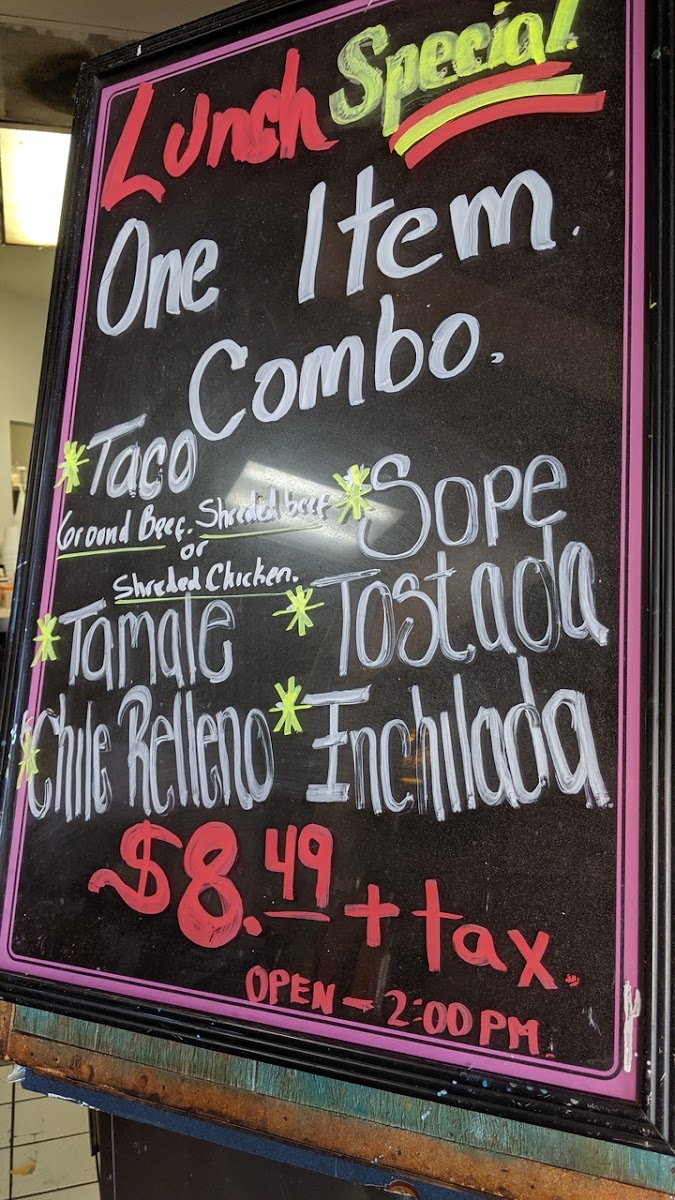 Lunch Special
One Item.
Combo.
*Taco
Ground Beef. Shreded beef
or
Shreded Chicken.
*Sope
*Tamale
*Tostada
*Chile Relleno
*Inchilada
$8.49 + tax.
OPEN - 2:00 PM.